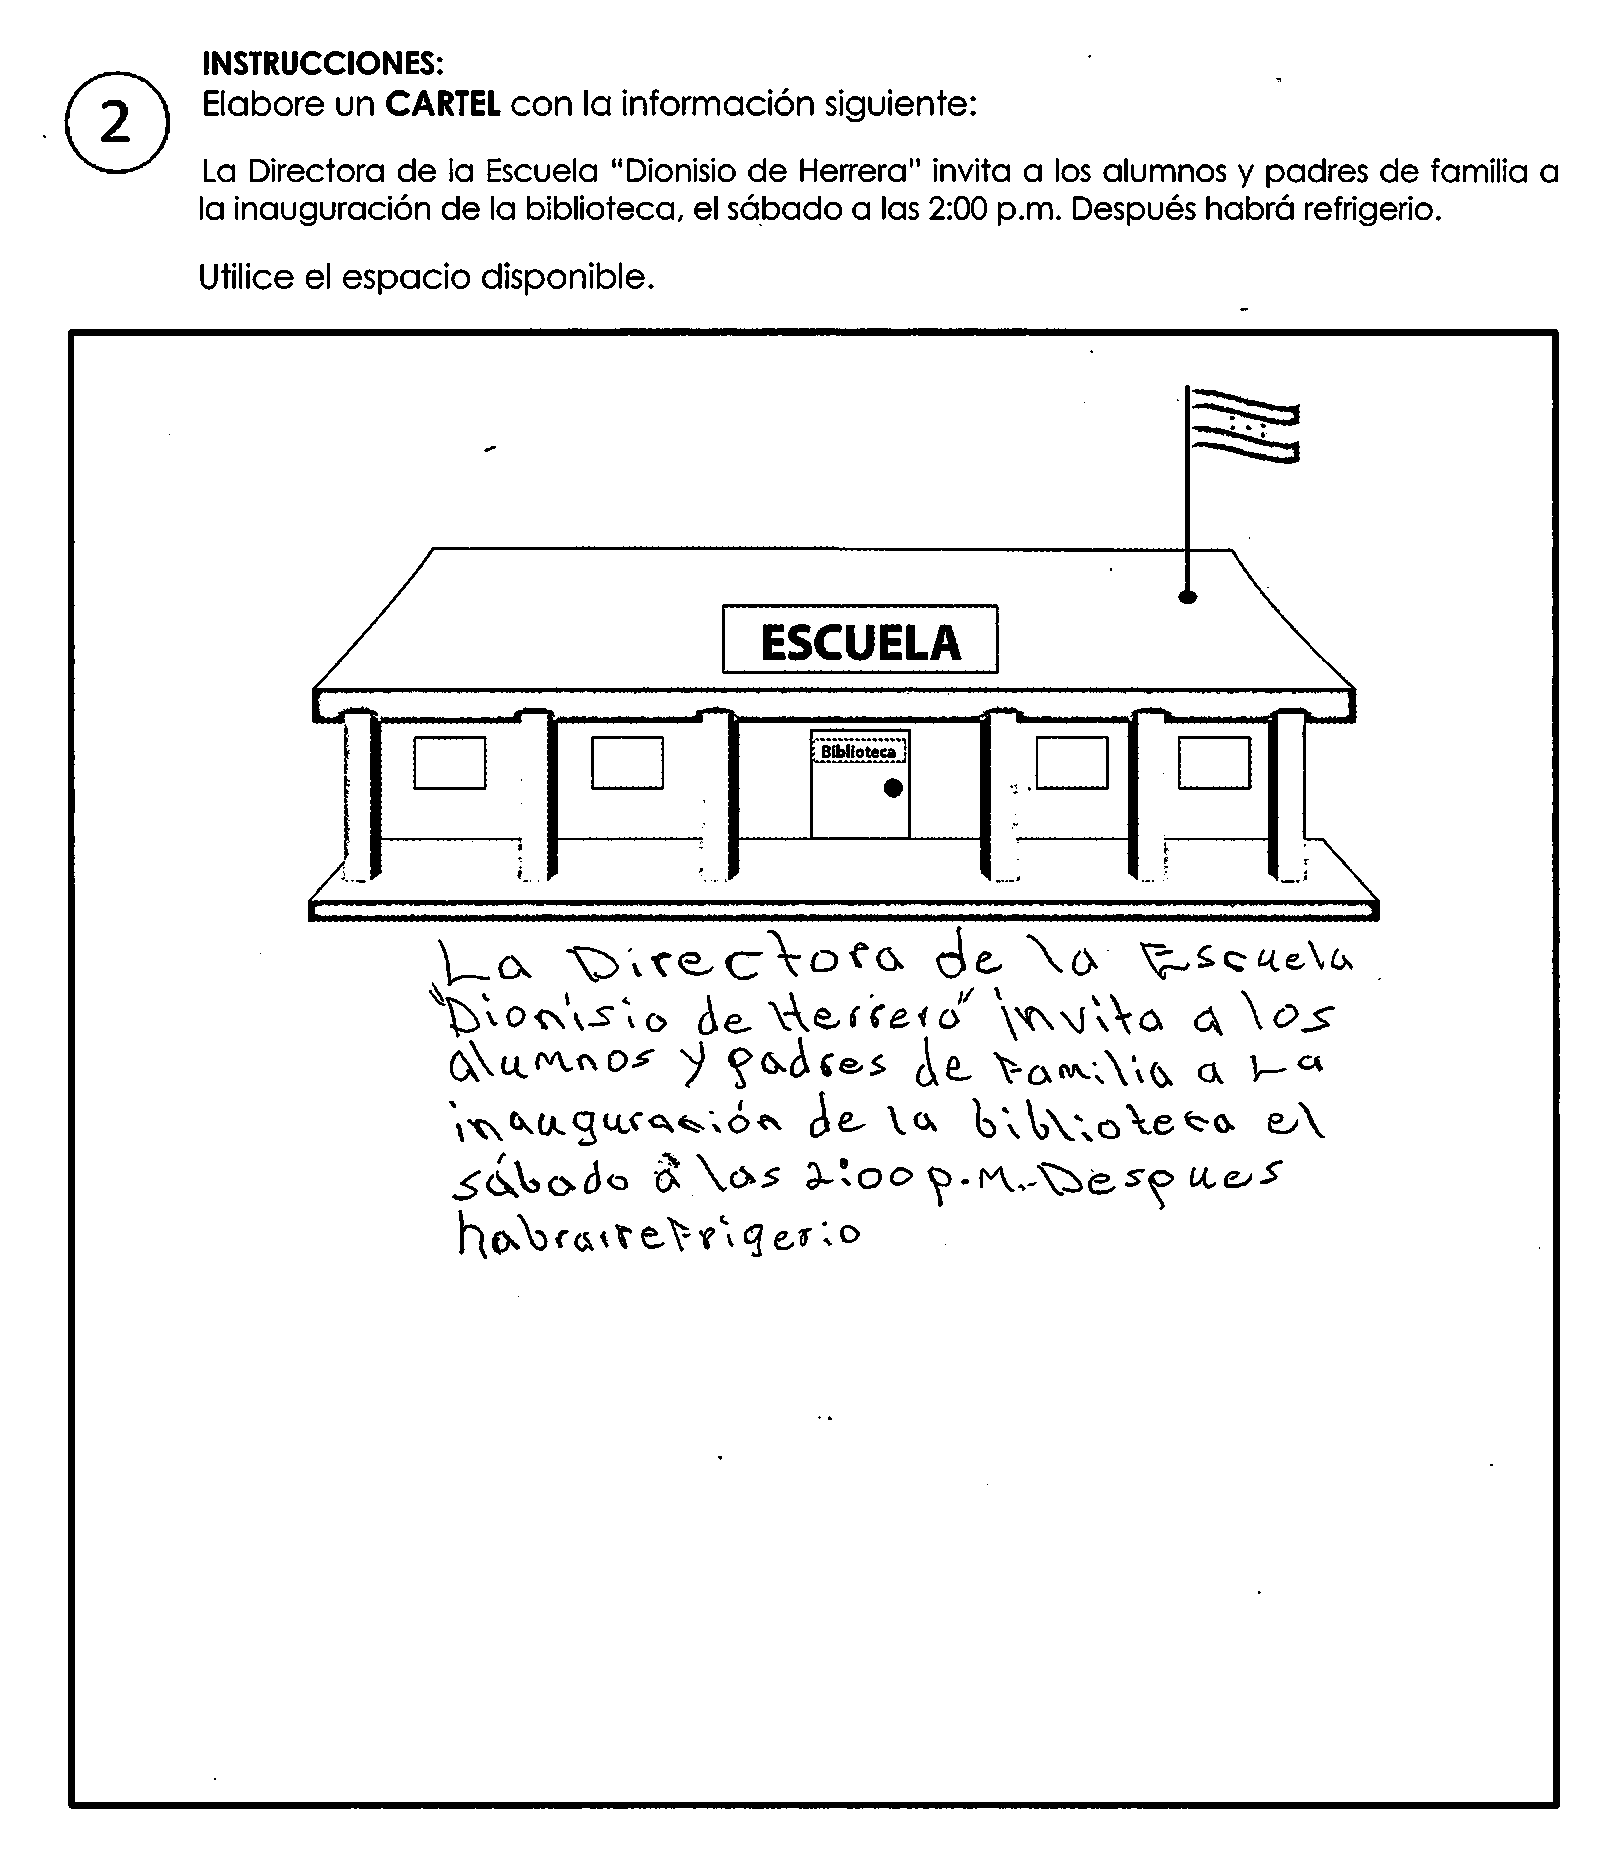 INSTRUCCIONES:
2
Elabore un CARTEL con la información siguiente:
La Directora de la Escuela "Dionisio de Herrera" invita a los alumnos y padres de familia a
la inauguración de la biblioteca, el sábado a las 2:00 p.m. Después habrá refrigerio.
Utilice el espacio disponible.
ESCUELA
Biblioteca
La Directora de la Escuela
"Dionisio de Herrero" invita a los
alumnos y padres de Familia a La
inauguración de la biblioteca el
sábado a las 2:00 p.M. Despues
habra refrigerio